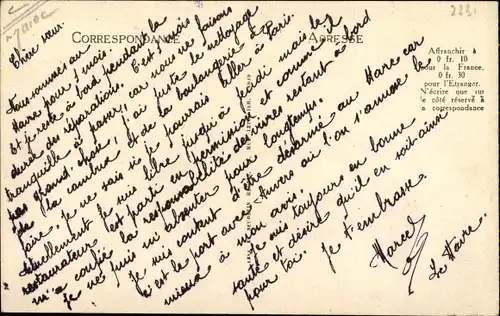 2231
CORRESPONDANCE
ADRESSE
Affranchir à
0 fr. 10
pour la France,
0 fr. 30
pour l'Etranger.
N'écrire que sur
le côté réservé à
la correspondance
Chère sœur.
Nous sommes au
Havre pour 3 mois.
Et je reste à bord pendant la
durée des réparations. C'est 3 mois
tranquille à passer, car nous ne faisons
pas grand'chose, j'ai juste le nettoyage
de la cambuse et de la boulangerie à
faire. Je ne sais si je pourrais aller à Paris.
Actuellement je suis libre jusqu'à jeudi mais le
restaurateur est parti en permission et comme il
m'a confié la responsabilité des vivres restant à bord
je ne puis m'absenter pour longtemps.
Je suis content d'être désarmé au Havre car
c'est le port avec Anvers où l'on s'amuse le
mieux à mon avis.
Je suis toujours en bonne
santé et désire qu'il en soit ainsi
pour toi. Je t'embrasse.
Marcel
Le Havre